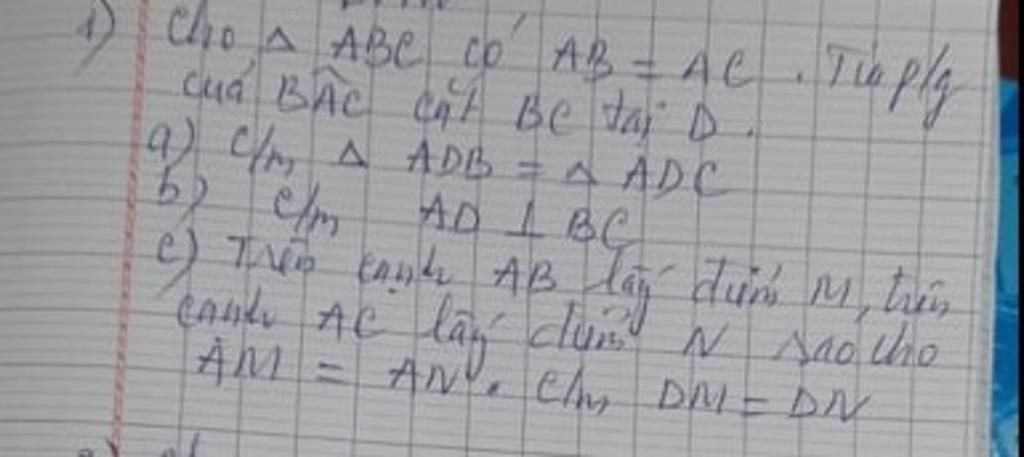 1) Cho Δ ABC có AB = AC. Tia p/g
của BÂC cắt BC tại D.
a) C/m Δ ADB = Δ ADC
b) C/m AD ⊥ BC
c) Trên cạnh AB lấy điểm M, trên
cạnh AC lấy điểm N sao cho
AM = AN. C/m DM = DN